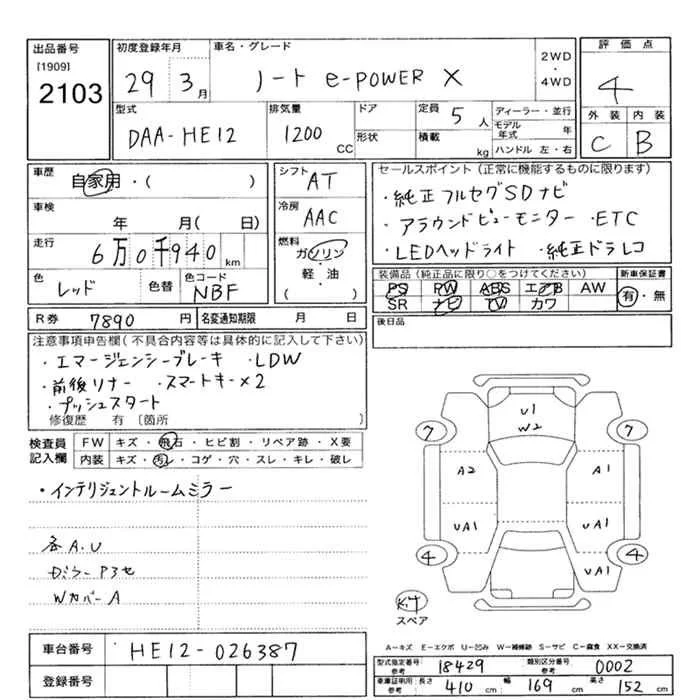 出品番号
[1909]
2103
初度登録年月
29 3月
車名・グレード
ノート e-POWER X
2WD
・
4WD
評価点
4
外装 内装
C B
型式
DAA-HE12
排気量
1200 CC
ドア
形状
定員 5人
積載 kg
ディーラー・並行
モデル年式 年
ハンドル 左・右
車歴
自家用・( )
車検
年 月( 日)
走行
6万0千940km
色
レッド
色替
色コード
NBF
シフト
AT
冷房
AAC
燃料
ガソリン
・
軽・油
( )
セールスポイント(正常に機能するものに限ります)
・純正フルセグSDナビ
・アラウンドビューモニター ・ETC
・LEDヘッドライト ・純正ドラレコ
装備品(純正品に限り○をつけてください)
PS PW ABS エアB AW
SR ナビ TV カワ
新車保証書
有・無
R券 7890円
名変通知期限 月 日
後日品
注意事項申告欄(不具合内容等は具体的に記入して下さい)
・エマージェンシーブレーキ ・LDW
・前後ソナー ・スマートキー×2
・プッシュスタート
修復歴 有 〔箇所
検査員記入欄
FW キズ・飛石・ヒビ割・リペア跡・X要
内装 キズ・汚レ・コゲ・穴・スレ・キレ・破レ
・インテリジェントルームミラー
各A.U
Dミラー P3セ
Wカバー A
U1
W2
7 7
A2 A1
UA1 UA1
4 4
UA1
キット
スペア
A-キズ E-エクボ U-凹み W-補修跡 S-サビ C-腐食 XX-交換済
車台番号
HE12-026387
登録番号
型式指定番号 参考 18429
類別区分番号 参考 0002
車庫証明用 参考
長さ 410 cm
幅 169 cm
高さ 152 cm